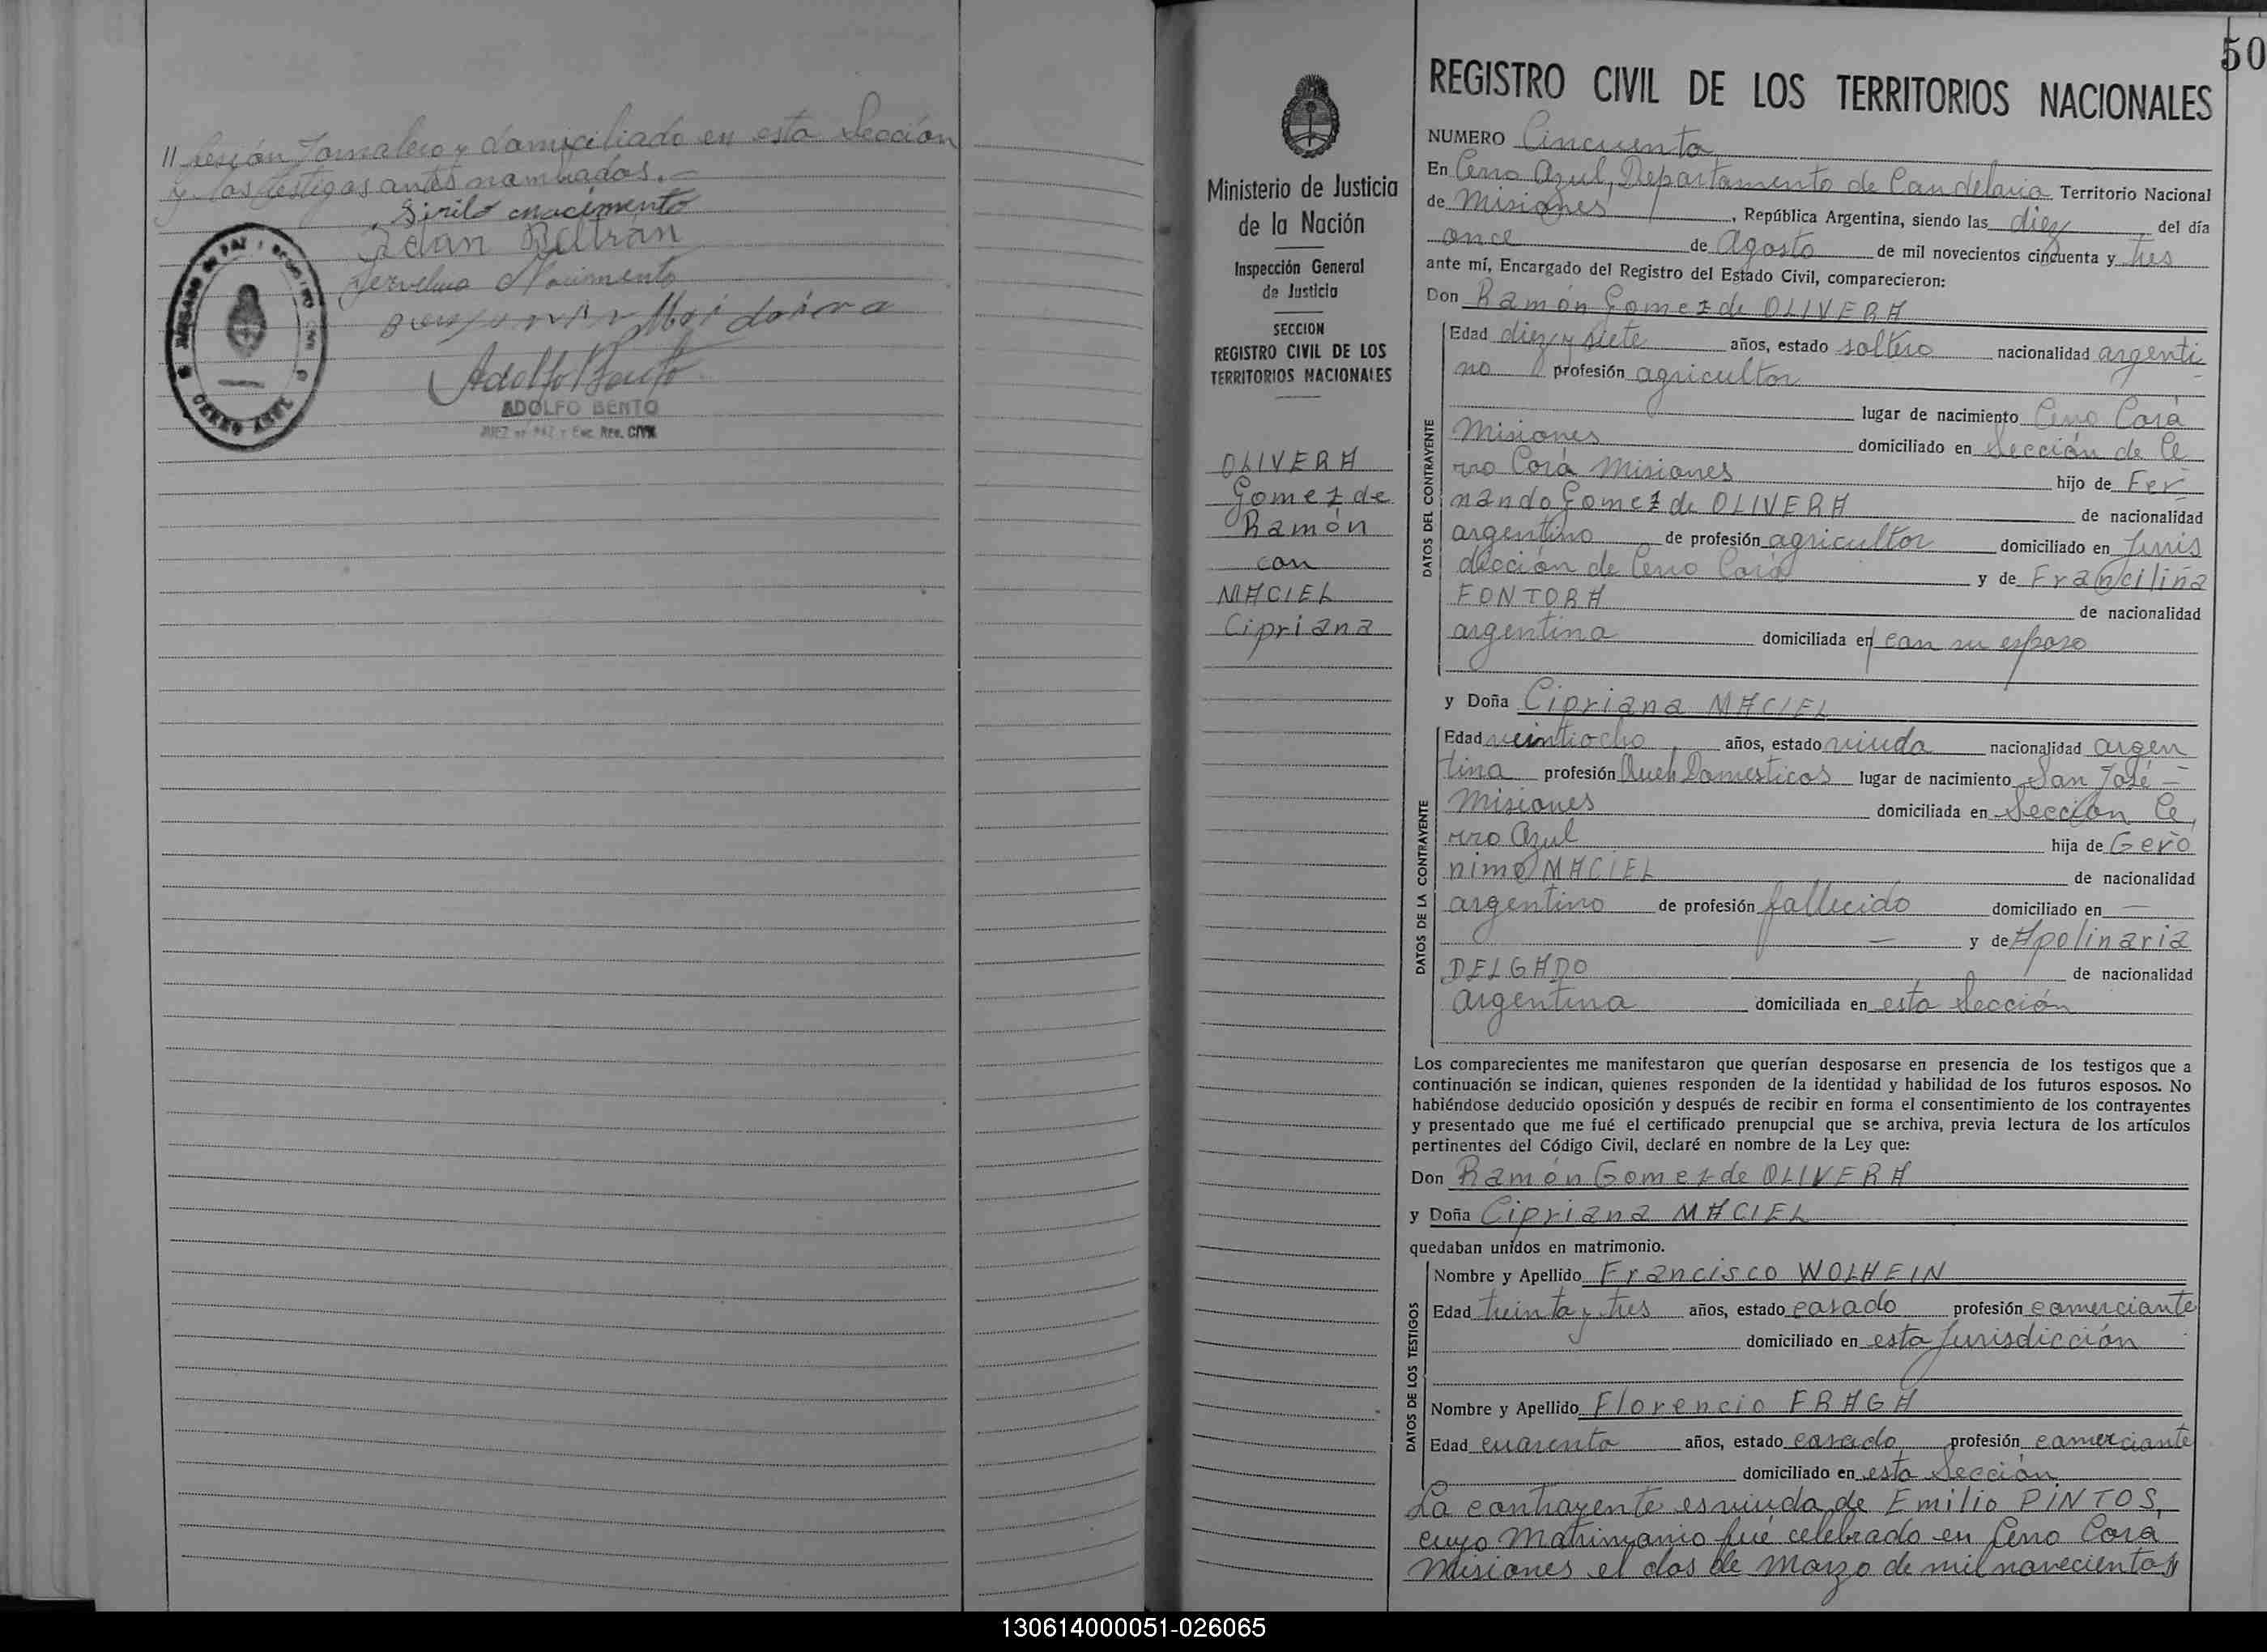 // fesión Jornalero y domiciliado en esta Sección
y los testigos antes nombrados.—
Sirilo nacimento
Beltrán
Nacimento
Adolfo Bento
ADOLFO BENTO
JUEZ DE PAZ y Enc. Reg. CIVIL
JUZGADO de PAZ y REGISTRO CIVIL
CERRO AZUL
50
Ministerio de Justicia
de la Nación
Inspección General
de Justicia
SECCION
REGISTRO CIVIL DE LOS
TERRITORIOS NACIONALES
OLIVERA
Gomez de
Ramón
con
MACIEL
Cipriana
REGISTRO CIVIL DE LOS TERRITORIOS NACIONALES
NUMERO Cincuenta
En Cerro Azul, Departamento de Candelaria Territorio Nacional
de Misiones, República Argentina, siendo las diez del día
once de Agosto de mil novecientos cincuenta y tres
ante mí, Encargado del Registro del Estado Civil, comparecieron:
Don Ramón Gomez de OLIVERA
DATOS DEL CONTRAYENTE
Edad diez y siete años, estado soltero nacionalidad argenti-
no profesión agricultor
lugar de nacimiento Cerro Corá
Misiones domiciliado en Sección de Ce
rro Corá Misiones hijo de Fer-
nando Gomez de OLIVERA de nacionalidad
argentino de profesión agricultor domiciliado en Juris
dicción de Cerro Corá y de Francilina
FONTORA de nacionalidad
argentina domiciliada en con su esposo
y Doña Cipriana MACIEL
DATOS DE LA CONTRAYENTE
Edad veintiocho años, estado viuda nacionalidad argen
tina profesión Queh. Domesticos lugar de nacimiento San José —
Misiones domiciliada en Sección Ce
rro Azul hija de Gerò
nimo MACIEL de nacionalidad
argentino de profesión fallecido domiciliado en —
— y de Apolinaria
DELGADO de nacionalidad
argentina domiciliada en esta Sección
Los comparecientes me manifestaron que querían desposarse en presencia de los testigos que a
continuación se indican, quienes responden de la identidad y habilidad de los futuros esposos. No
habiéndose deducido oposición y después de recibir en forma el consentimiento de los contrayentes
y presentado que me fué el certificado prenupcial que se archiva, previa lectura de los artículos
pertinentes del Código Civil, declaré en nombre de la Ley que:
Don Ramón Gomez de OLIVERA
y Doña Cipriana MACIEL
quedaban unidos en matrimonio.
DATOS DE LOS TESTIGOS
Nombre y Apellido Francisco WOLHEIN
Edad treinta y tres años, estado casado profesión comerciante
domiciliado en esta Jurisdicción
Nombre y Apellido Florencio FRAGA
Edad cuarenta años, estado casado profesión comerciante
domiciliado en esta Sección
La contrayente es viuda de Emilio PINTOS,
cuyo Matrimonio fué celebrado en Cerro Corá
Misiones el dos de Marzo de mil novecientos
130614000051-026065